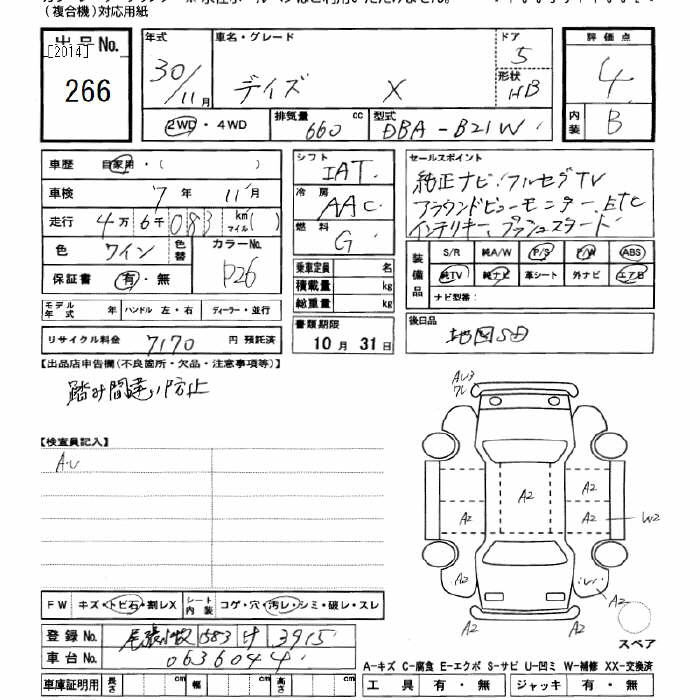 (複合機)対応用紙
出品No.
[2014]
266
年式
30/11月
車名・グレード
デイズ X
ドア
5
形状
HB
評価点
4
内装
B
2WD・4WD
排気量 cc
660
型式
DBA-B21W
車歴 自家用・( )
車検 7年 11月
走行 4万6千083 km マイル( )
色 ワイン
色替
カラーNo.
保証書 有・無
シフト
IAT
冷房
AAC
燃料
G
乗車定員 名
積載量 kg
総重量 kg
セールスポイント
純正ナビ フルセグTV
アラウンドビューモニター ETC
インテリキー プッシュスタート
装備品
S/R 純A/W P/S P/W ABS
純TV 純ナビ 革シート 外ナビ エアB
ナビ型番:
モデル年式 年 ハンドル 左・右 ディーラー・並行
リサイクル料金 7170 円 預託済
書類期限
10月 31日
後日品
地図SD
【出品店申告欄(不良箇所・欠品・注意事項等)】
踏み間違い防止
【検査員記入】
A・U
AU3
ワレ
A2
A2 A2
A2 A2 W2
A2 A2
A2 A2
スペア
FW キズ・トビ石・割レX
シート内装 コゲ・穴・汚レ・シミ・破レ・スレ
登録No. 尾張小牧 583 け 3915
車台No. 0636044
車庫証明用 長さ cm 幅 cm 高さ cm
A-キズ C-腐食 E-エクボ S-サビ U-凹ミ W-補修 XX-交換済
工具 有・無 ジャッキ 有・無